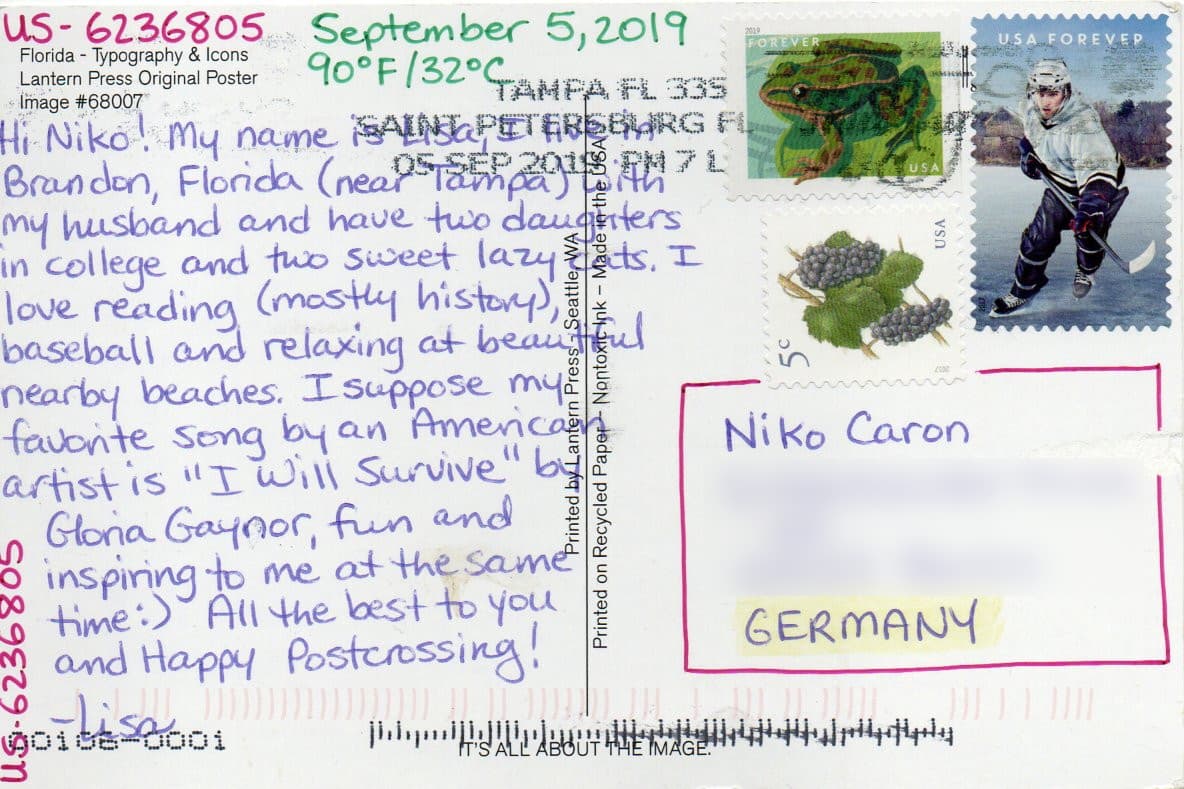 US-6236805
September 5, 2019
90°F/32°C
Florida - Typography & Icons
Lantern Press Original Poster
Image #68007
TAMPA FL 335
SAINT PETERSBURG FL
05 SEP 2019 PM 7 L
Hi Niko! My name is Lisa, I live in
Brandon, Florida (near Tampa) with
my husband and have two daughters
in college and two sweet lazy cats. I
love reading (mostly history),
baseball and relaxing at beautiful
nearby beaches. I suppose my
favorite song by an American
artist is "I Will Survive" by
Gloria Gaynor, fun and
inspiring to me at the same
time:) All the best to you
and Happy Postcrossing!
-Lisa
US-6236805
Printed by Lantern Press - Seattle, WA
Printed on Recycled Paper - Nontoxic Ink - Made in the USA
2019
FOREVER
USA
USA FOREVER
2017
USA
5c
2017
Niko Caron
GERMANY
00106-0001
IT'S ALL ABOUT THE IMAGE.